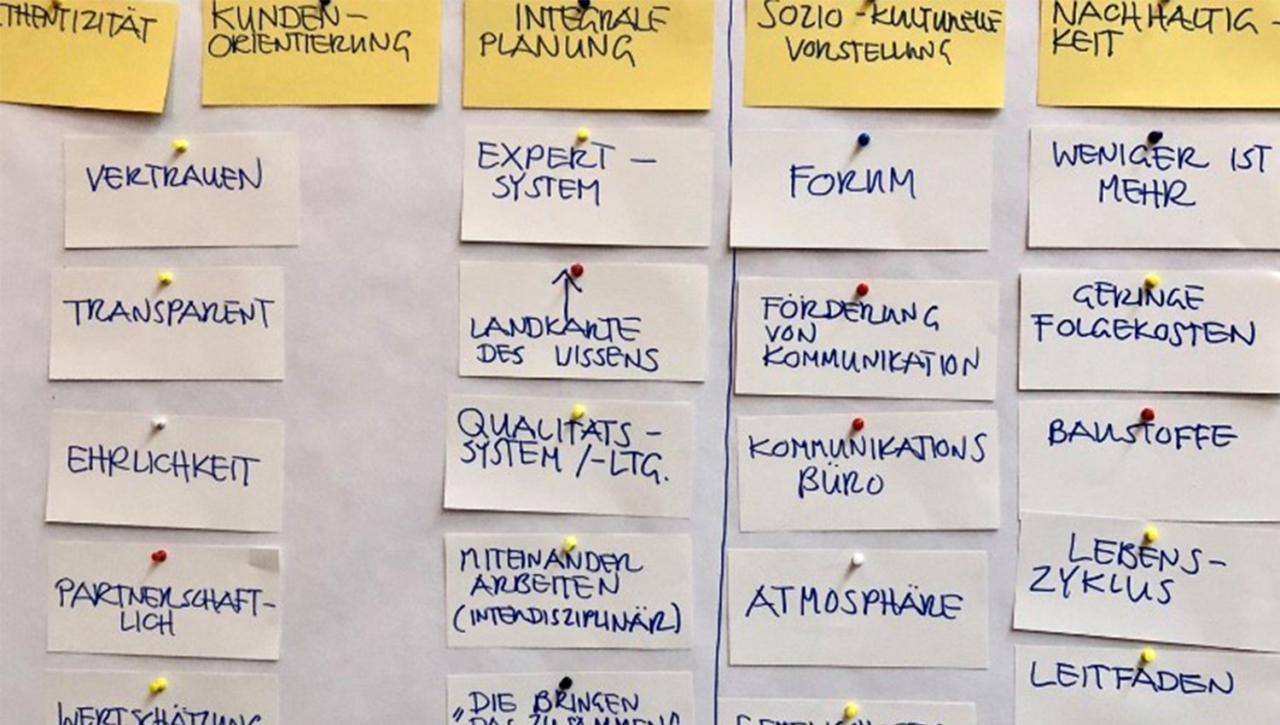 THENTIZITÄT
KUNDEN-
ORIENTIERUNG
INTEGRALE
PLANUNG
SOZIO-KULTURELLE
VORSTELLUNG
NACHHALTIG-
KEIT
VERTRAUEN
TRANSPARENT
EHRLICHKEIT
PARTNERSCHAFT-
LICH
WERTSCHÄTZUNG
EXPERT-
SYSTEM
LANDKARTE
DES WISSENS
QUALITÄTS-
SYSTEM/-LTG.
MITEINANDER
ARBEITEN
(INTERDISZIPLINÄR)
"DIE BRINGEN
DAS ZUSAMMEN"
FORUM
FÖRDERUNG
VON
KOMMUNIKATION
KOMMUNIKATIONS
BÜRO
ATMOSPHÄRE
WENIGER IST
MEHR
GERINGE
FOLGEKOSTEN
BAUSTOFFE
LEBENS-
ZYKLUS
LEITFADEN